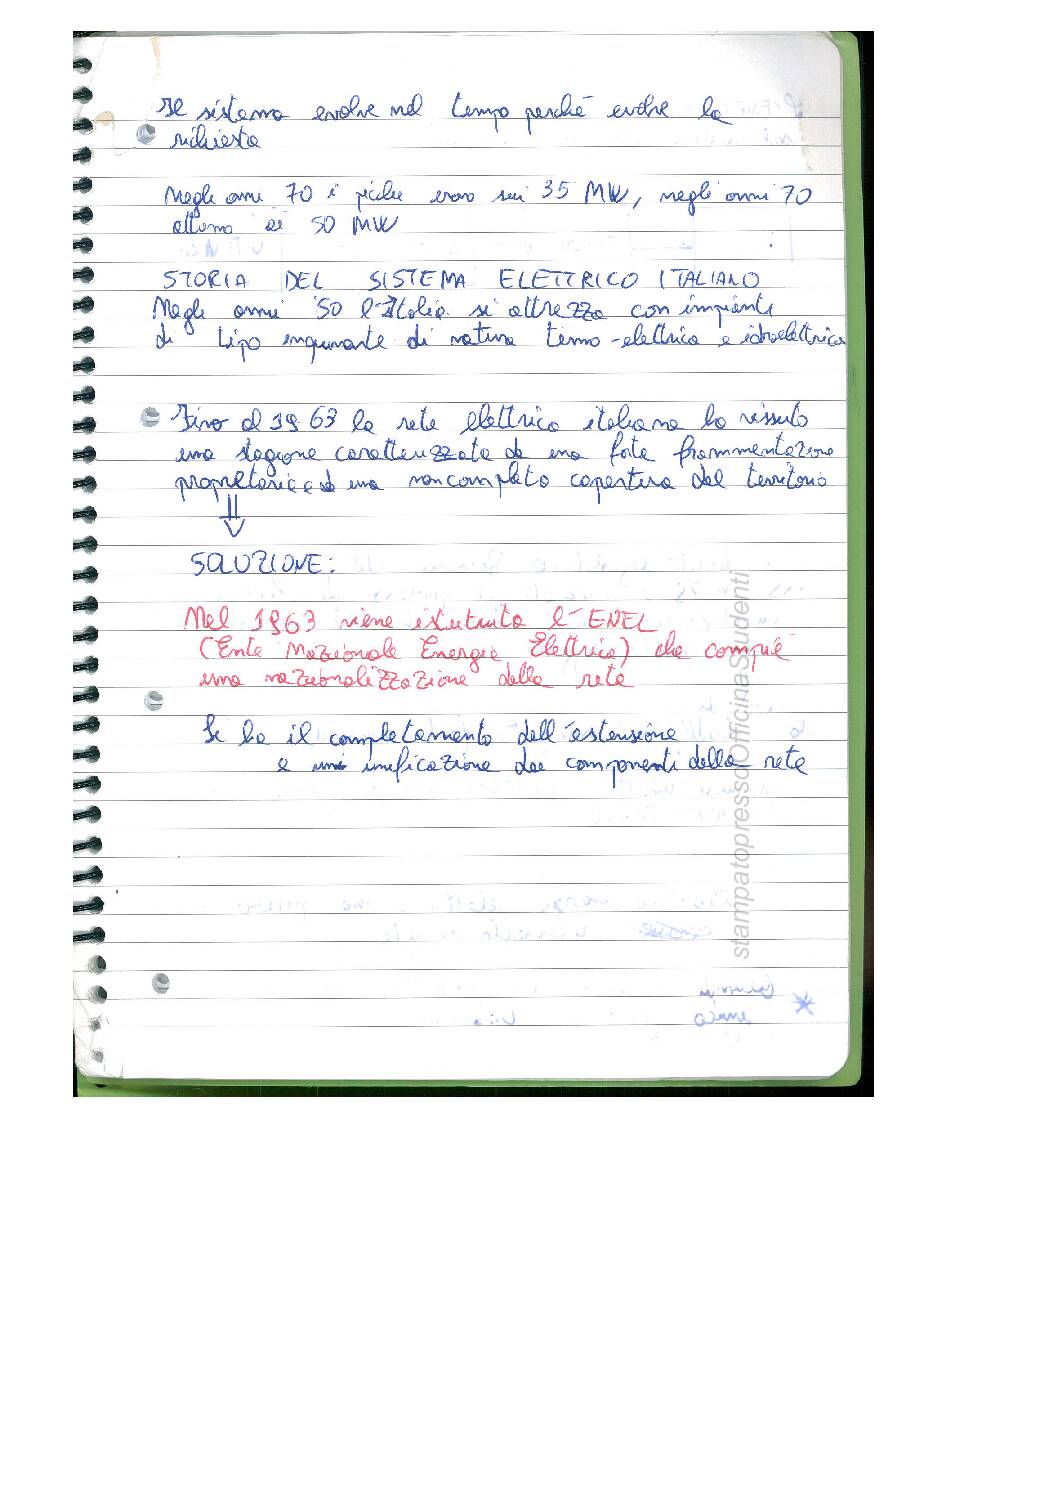 Il sistema evolve nel tempo perché evolve la
richiesta
Negli anni 70 i picchi erano sui 35 MW, negli anni 70
attorno ai 50 MW
STORIA DEL SISTEMA ELETTRICO ITALIANO
Negli anni '50 l'Italia si attrezza con impianti
di tipo inquinante di natura termo-elettrica e idroelettrica
Fino al 1963 la rete elettrica italiana ha vissuto
una stagione caratterizzata da una forte frammentazione
proprietaria e da una non completa copertura del territorio
SOLUZIONE:
Nel 1963 viene istituito l'ENEL
(Ente Nazionale Energia Elettrica) che compie
una nazionalizzazione della rete
Si ha il completamento dell'estensione
e unificazione dei componenti della rete
stampatopressoOfficinaStudenti